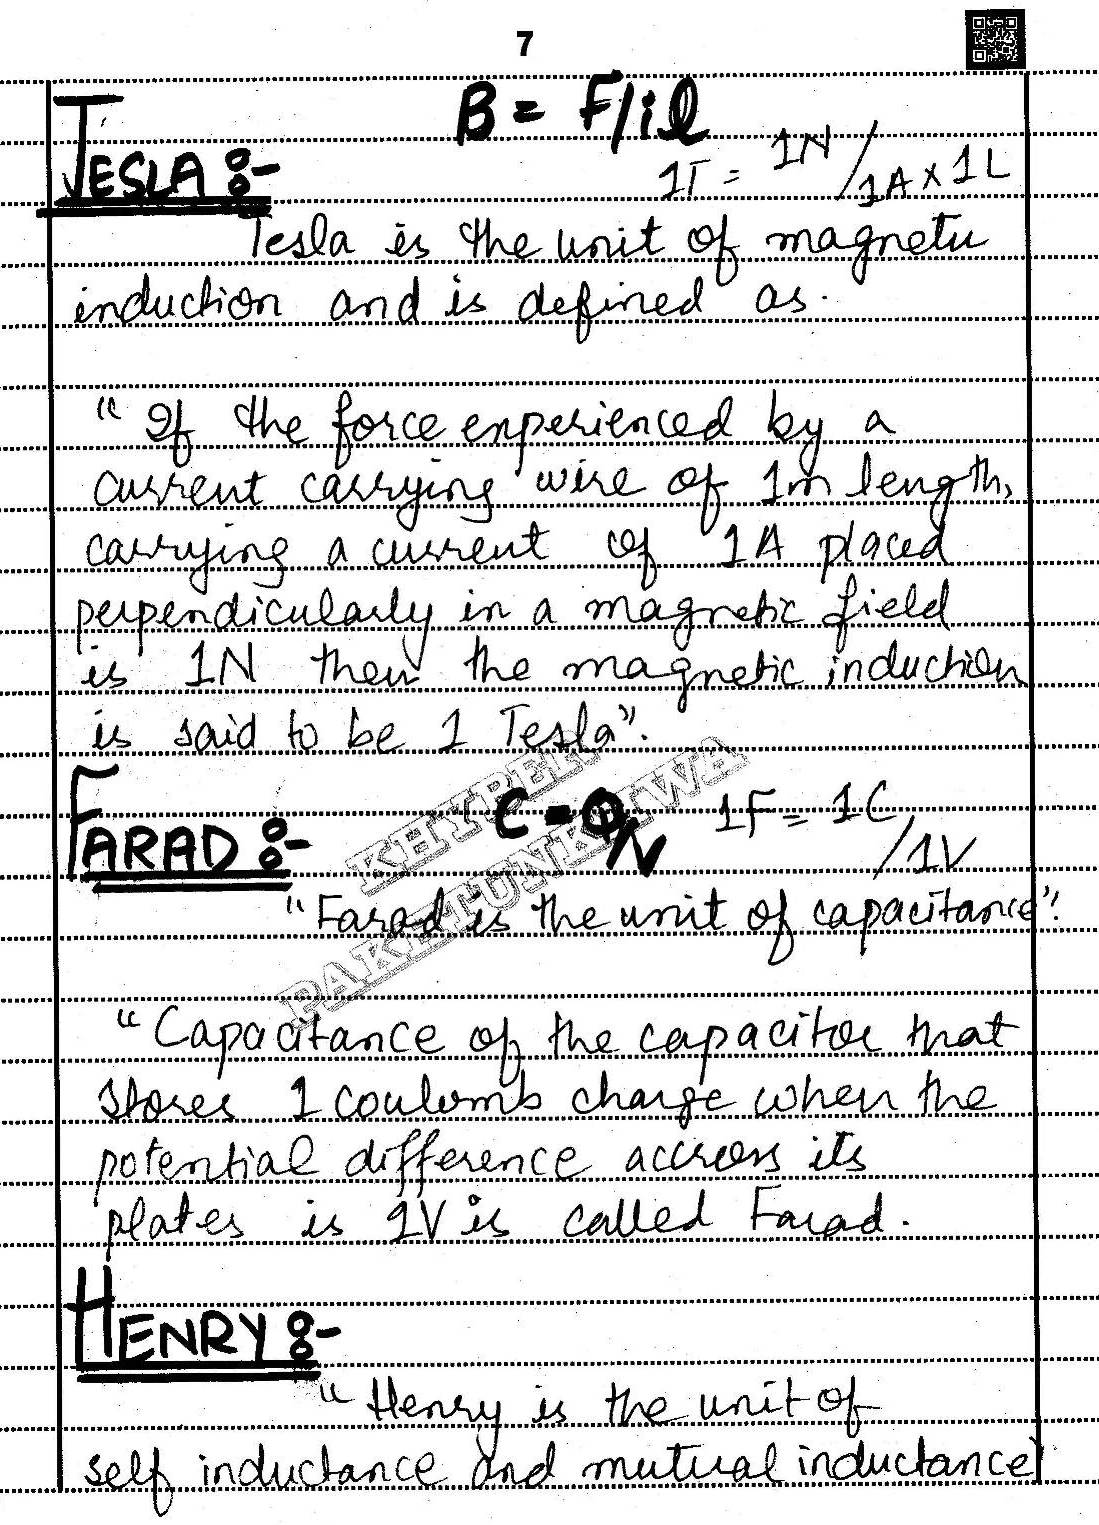 7
B = F/il
TESLA :-
1T = 1N / 1A × 1L
Tesla is the unit of magnetic
induction and is defined as.
“If the force experienced by a
current carrying wire of 1m length,
carrying a current of 1A placed
perpendicularly in a magnetic field
is 1N then the magnetic induction
is said to be 1 Tesla”.
KHYBER
PAKHTUNKHWA
FARAD :-
C = Q/V 1F = 1C / 1V
“Farad is the unit of capacitance”.
“Capacitance of the capacitor that
stores 1 coulomb charge when the
potential difference accross its
plates is 1V is called Farad.
HENRY :-
“Henry is the unit of
self inductance and mutual inductance”